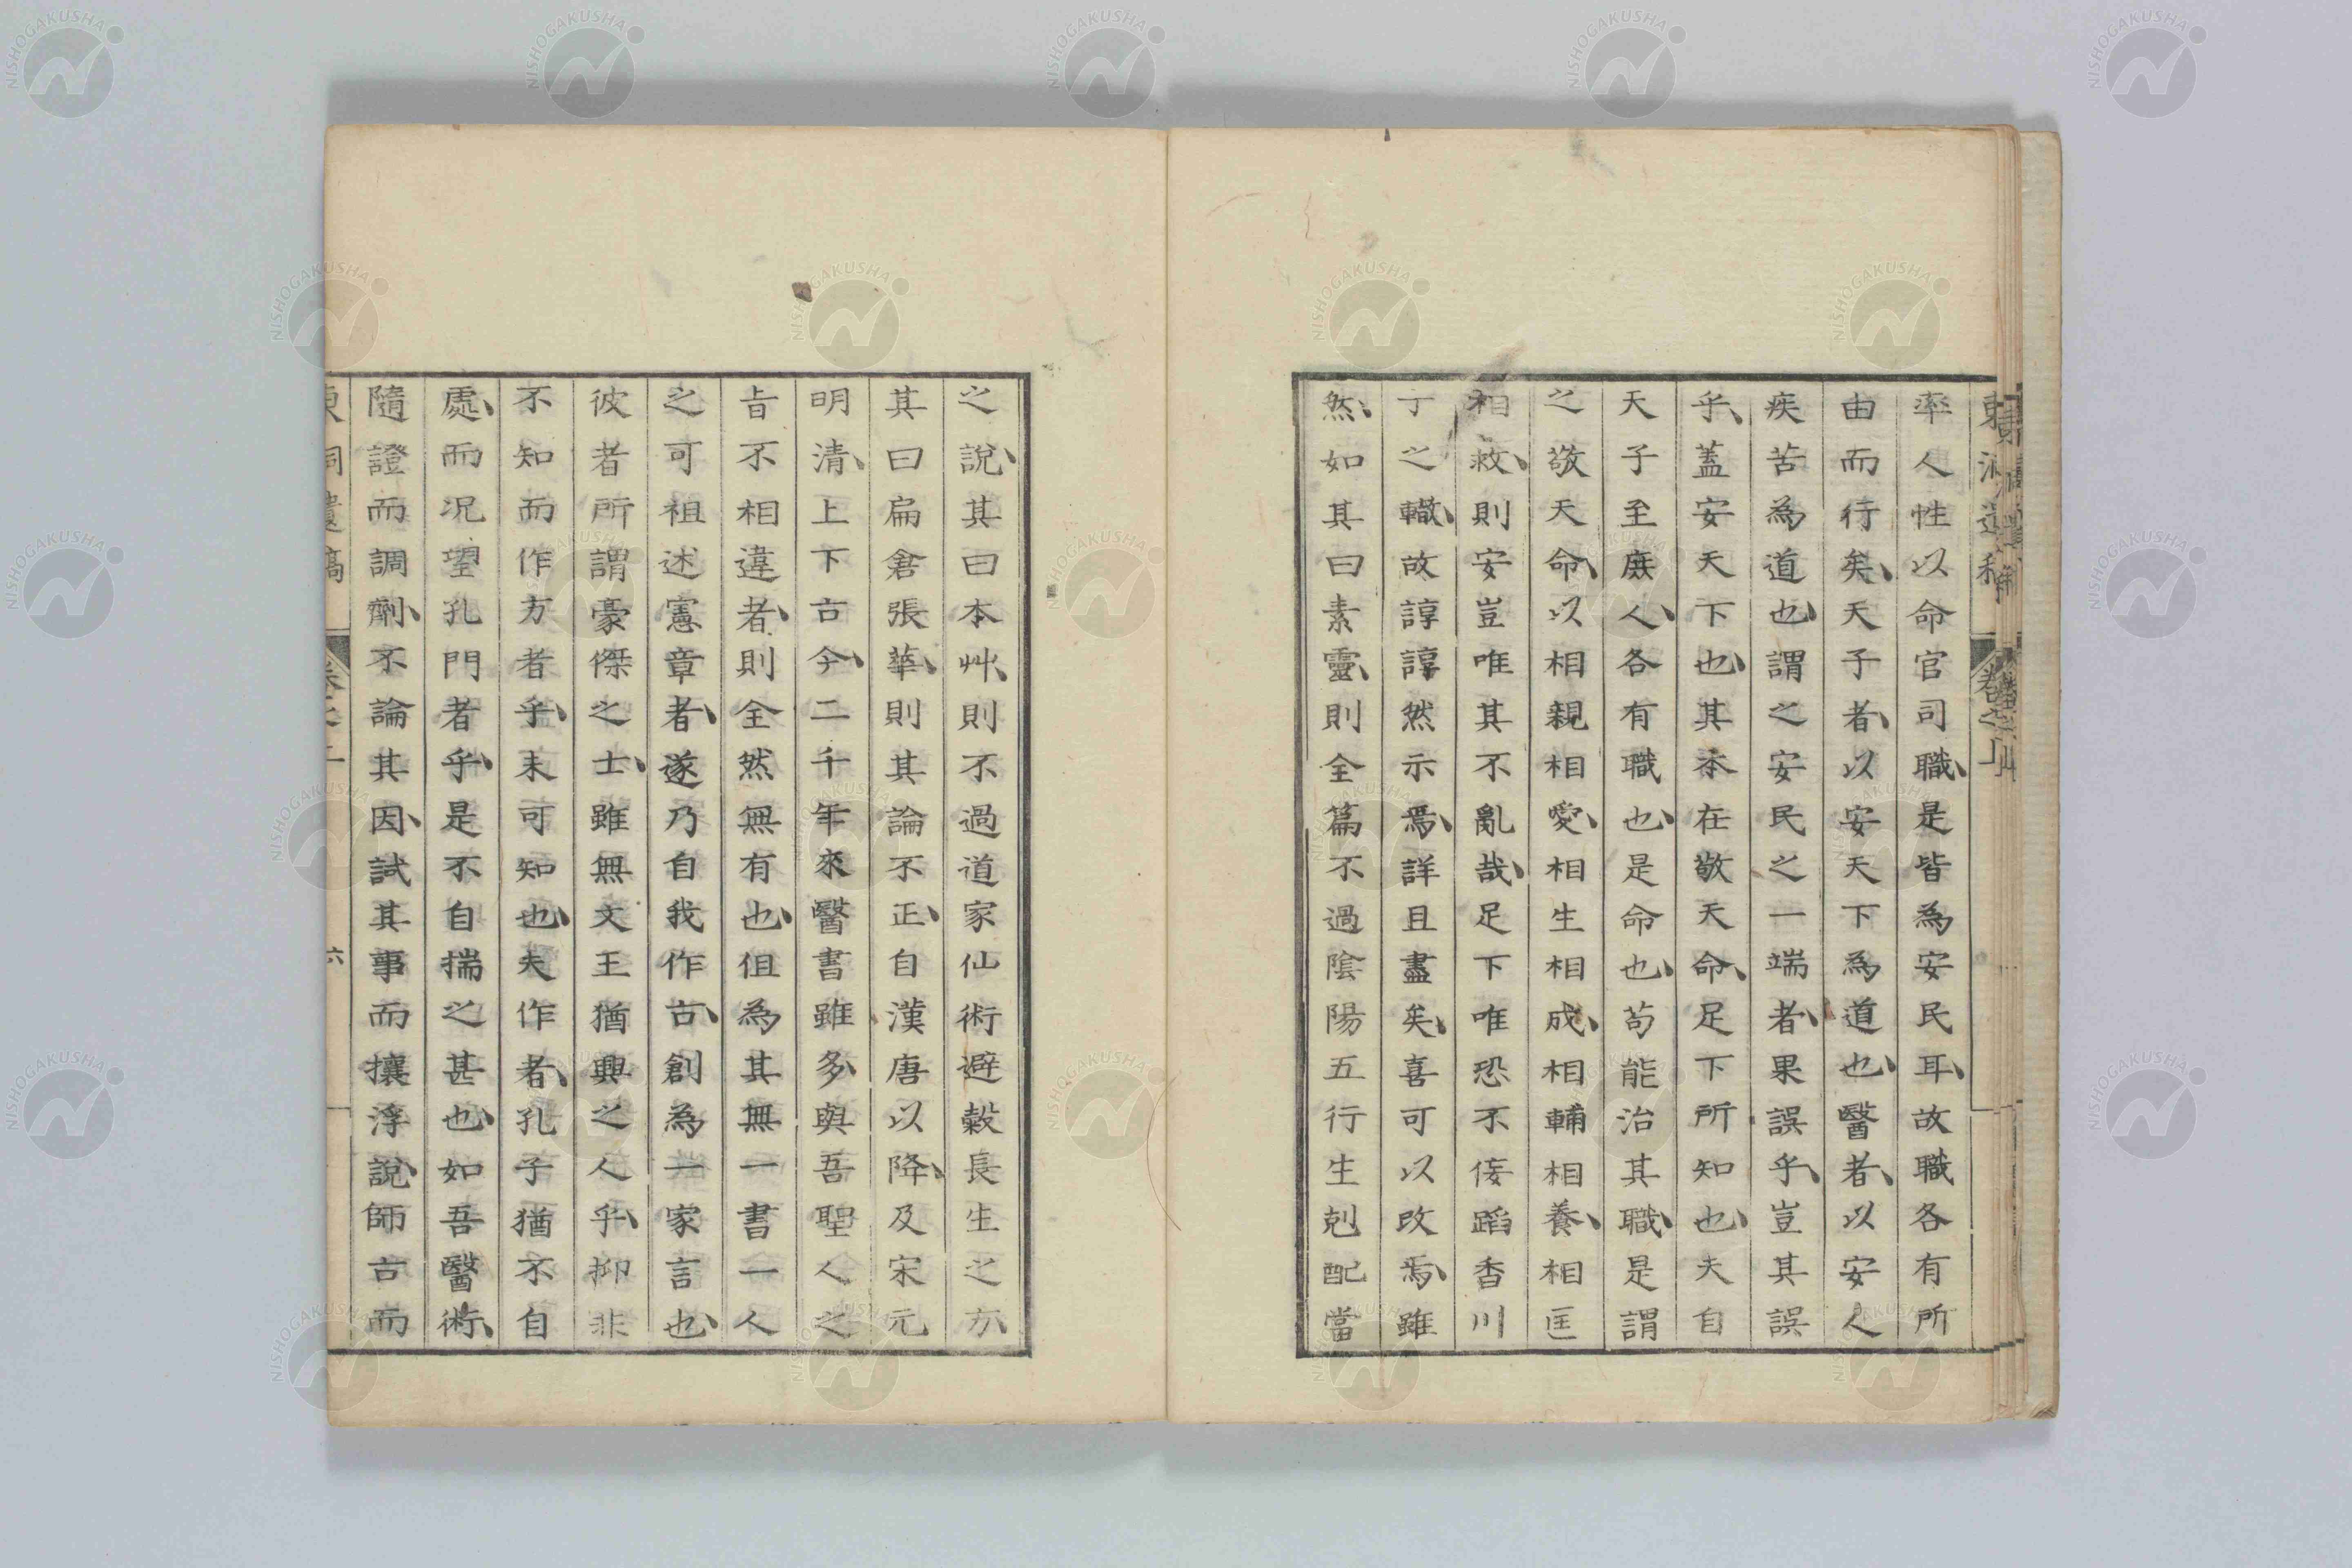 率人性以命官司職、是皆為安民耳、故職各有所
由而行矣、天子者、以安天下為道也、醫者、以安人
疾苦為道也、謂之安民之一端者、果誤乎、豈其誤
乎、蓋安天下也、其本在敬天命、足下所知也、夫自
天子至庶人、各有職也、是命也、苟能治其職、是謂
之敬天命、以相親相愛、相生相成、相輔相養、相匡
相救、則安豈唯其不亂哉、足下唯恐不倿蹈香川
子之轍、故諄諄然示焉、詳且盡矣、喜可以改焉、雖
然、如其曰素靈、則全篇不過陰陽五行生剋配當
之說、其曰本艸、則不過道家仙術避穀長生之方、
其曰扁倉張華、則其論不正、自漢唐以降、及宋元
明清、上下古今、二千年來醫書雖多、與吾聖人之
旨不相違者、則全然無有也、但為其無一書一人
之可祖述憲章者、遂乃自我作古、創為一家言也、
彼者所謂豪傑之士、雖無文王猶興之人乎、抑非
不知而作方者乎、未可知也、夫作者、孔子猶不自
處、而況望孔門者乎、是不自揣之甚也、如吾醫術、
隨證而調劑、不論其因、試其事而攘浮說、師古而
東洞遺稿 卷之上 六
NISHOGAKUSHA